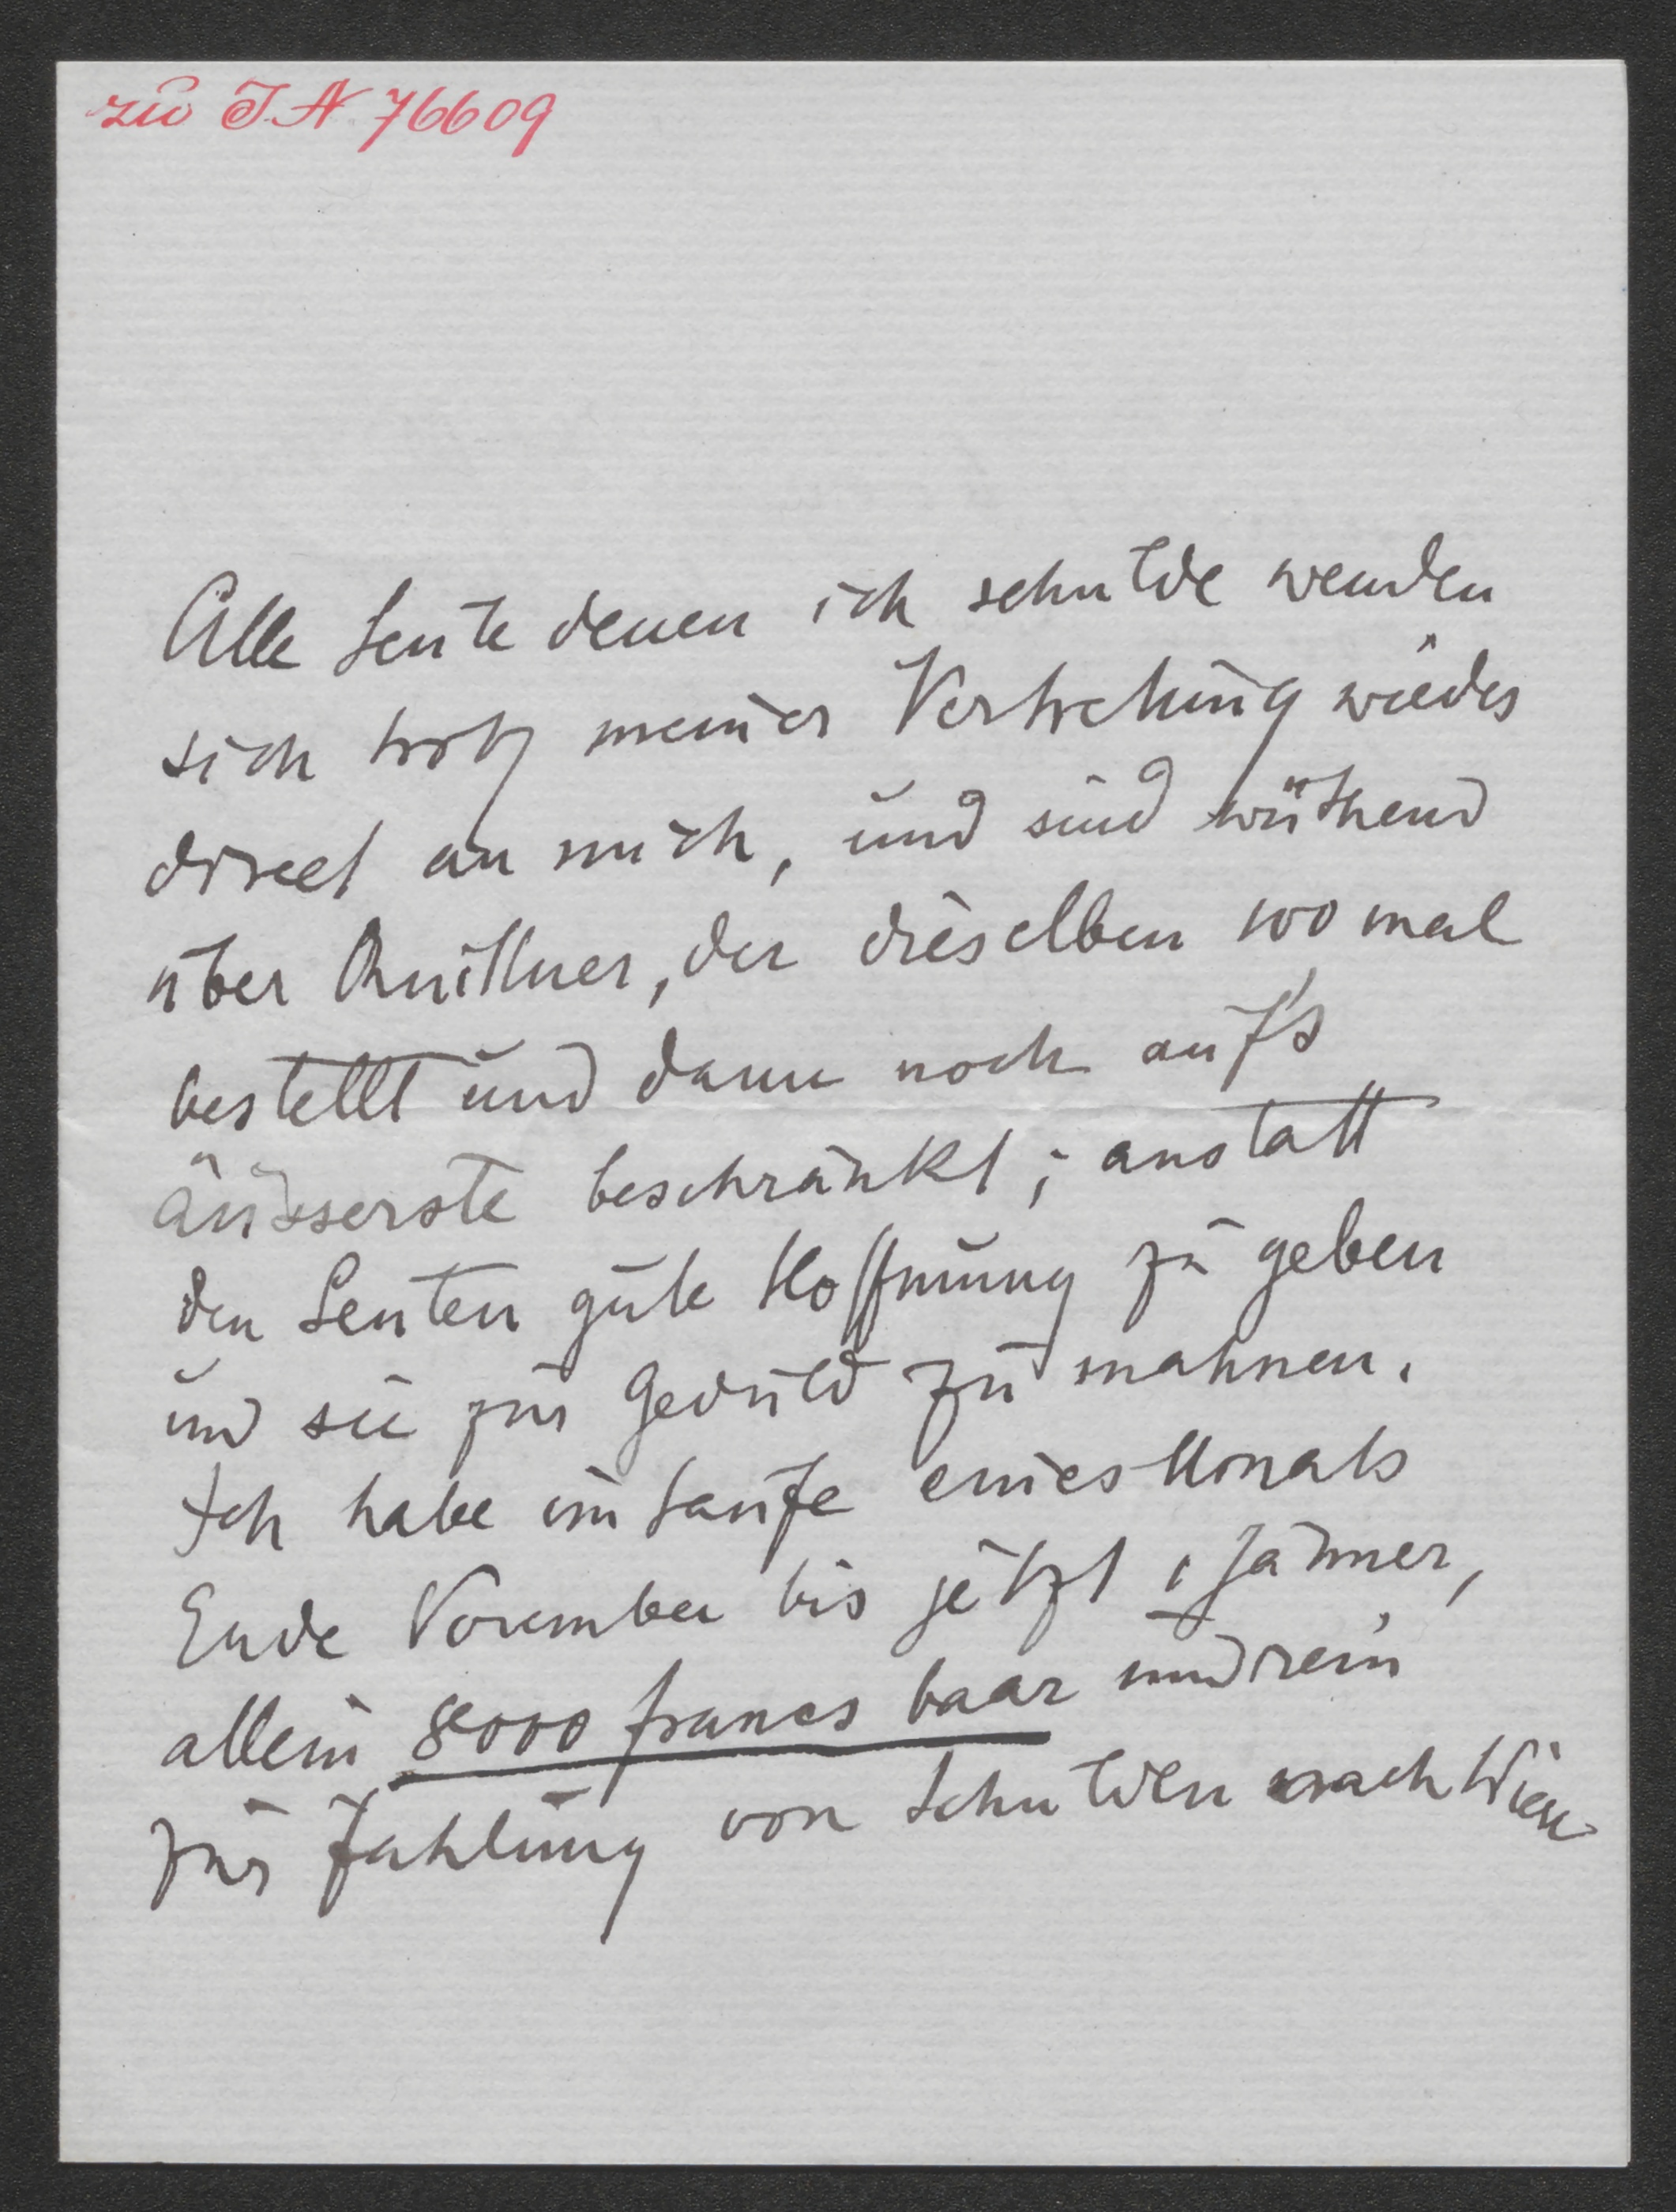 zu I.N. 76609
Alle Leute denen ich schulde wenden
sich trotz meiner Vertretung wieder
direct an mich, und sind wüthend
über Quittner, der dieselben 100 mal
bestellt und dann noch auf's
äüsserste beschränkt; anstatt
den Leuten gute Hoffnung zu geben
und sie zur Geduld zu mahnen.
Ich habe im Laufe eines Monats
Ende November bis jetzt 1 Jänner,
allein 8000 francs baar und rein
zur Zahlung von Schulden nach Wien